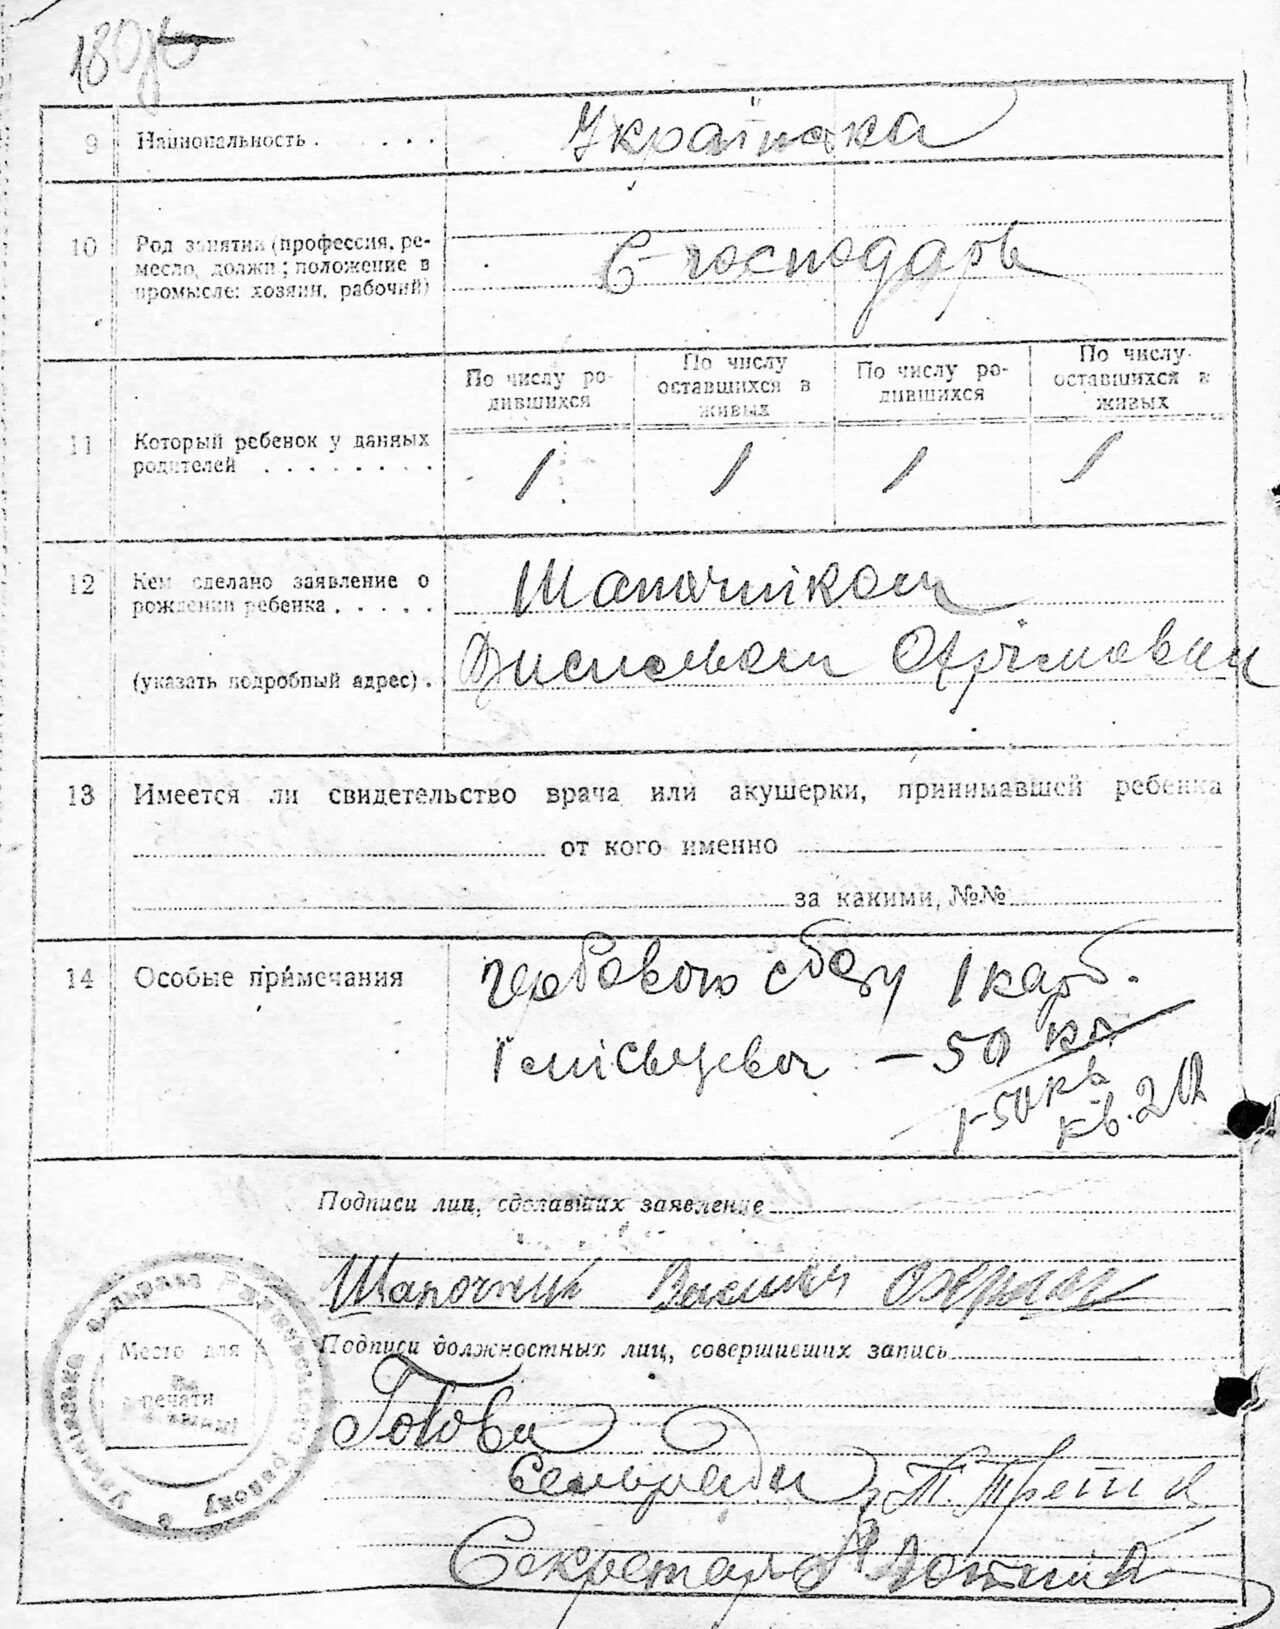 180
9 Национальность . . . . . Українка
10 Род занятий (профессия, ре-
месло, должн; положение в
промысле: хозяин, рабочий)
С-господарь
По числу ро-
дившихся
По числу
оставшихся в
живых
По числу ро-
дившихся
По числу
оставшихся в
живых
11 Который ребенок у данных
родителей . . . . . . . .
1 1 1 1
12 Кем сделано заявление о
рождении ребенка . . . . .
Шапочніком
(указать подробный адрес) .
13 Имеется ли свидетельство врача или акушерки, принимавшей ребенка
от кого именно
за какими, №№
14 Особые примечания
Гербового сбору 1 карб.
І місьцевої – 50 кп
1-50 кп
кв. 20
Подписи лиц, сделавших заявление
Шапочник
Подписи должностных лиц, совершивших запись
Место для
печати
Голова
Сельради
Секретарь